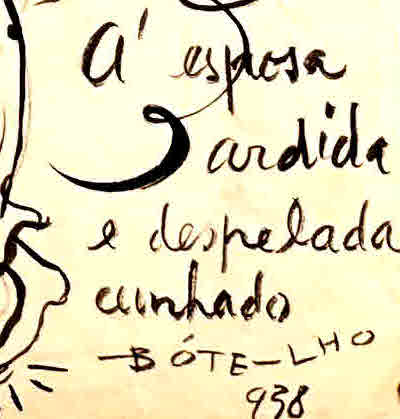 A' esposa
ardida
e despelada
cunhado
-BÓTE-LHO
938